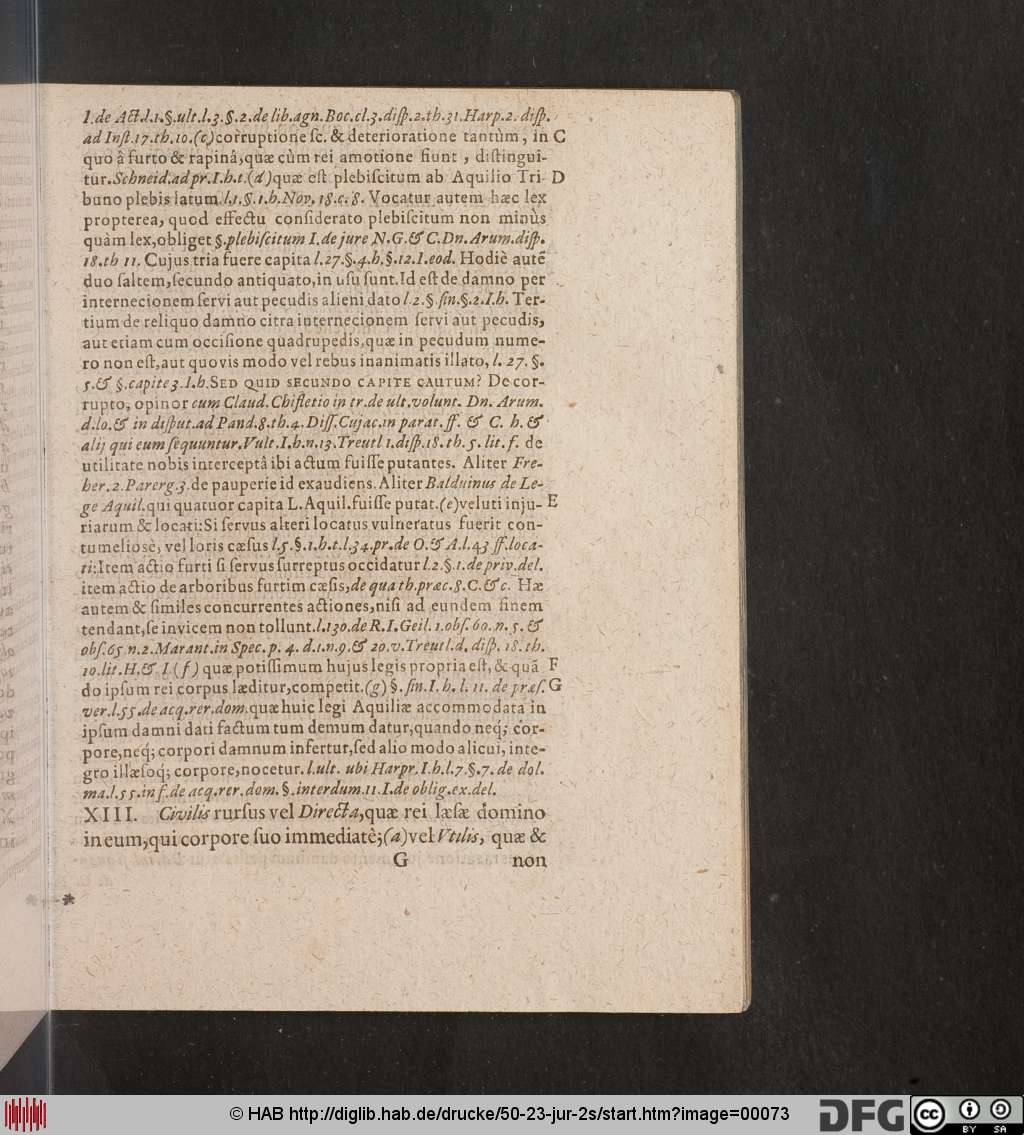 I.de Act.l.1.§.ult.l.3.§.2.de lib.agn.Boc.cl.3.disp.2.th.31.Harp.2.disp.
ad Inst.17.th.10.(c)corruptione sc. & deterioratione tantùm, in C
quo â furto & rapinâ,quæ cùm rei amotione fiunt, distingui-
tur.Schneid.ad pr.I.h.t.(d)quæ est plebiscitum ab Aquilio Tri- D
buno plebis latum.l.1.§.1.h.Nov, 18.c.8. Vocatur autem hæc lex
propterea, quod effectu considerato plebiscitum non minùs
quàm lex,obliget §.plebiscitum I.de jure N.G.& C.Dn.Arum.disp.
18.th 11. Cujus tria fuere capita l.27.§.4.h.§.12.I.eod. Hodiè autē
duo saltem,secundo antiquato,in usu sunt.Id est de damno per
internecionem servi aut pecudis alieni dato l.2.§.fin.§.2.I.h. Ter-
tium de reliquo damno citra internecionem servi aut pecudis,
aut etiam cum occisione quadrupedis,quæ in pecudum nume-
ro non est,aut quovis modo vel rebus inanimatis illato, l. 27. §.
5.& §.capite 3.I.h.SED QUID SECUNDO CAPITE CAUTUM? De cor-
rupto, opinor cum Claud. Chifletio in tr.de ult.volunt. Dn. Arum.
d.lo.& in disput.ad Pand.8.th.4.Diss.Cujac.in parat.ff. & C. h.&
alij qui eum sequuntur.Vult.I.h.n.13.Treutl 1.disp.18.th.5.lit.f. de
utilitate nobis interceptâ ibi actum fuisse putantes. Aliter Fre-
her.2.Parerg.3.de pauperie id exaudiens.Aliter Balduinus de Le-
ge Aquil.qui quatuor capita L.Aquil.fuisse putat.(e)veluti inju- E
riarum & locati:Si servus alteri locatus vulneratus fuerit con-
tumeliosè, vel loris cæsus l.5.§.1.h.t.l.34.pr.de O.& A.l.43 ff.loca-
ti:Item actio furti si servus surreptus occidatur l.2.§.1.de priv.del.
item actio de arboribus furtim cæsis,de qua th.præc.8.C.& c. Hæ
autem & similes concurrentes actiones,nisi ad eundem finem
tendant,se invicem non tollunt.l.130.de R.I.Geil.1.obs.60.n.5.&
obs.65.n.2.Marant.in Spec.p. 4. d.1.n.9.& 20.v.Treutl.d. disp. 18. th.
10.lit.H.& I (f) quæ potissimum hujus legis propria est, & quā F
do ipsum rei corpus læditur,competit.(g) §. fin.I. h. l. 11. de præs. G
ver.l.55.de acq.rer.dom.quæ huic legi Aquiliæ accommodata in
ipsum damni dati factum tum demum datur,quando neq; cor-
pore,neq; corpori damnum infertur,sed alio modo alicui, inte-
gro illæsoq; corpore,nocetur. l.ult. ubi Harpr.I.h.l.7.§.7. de dol.
ma.l.55.in f.de acq.rer.dom.§.interdum.11.I.de oblig.ex.del.
XIII. Civilis rursus vel Directa,quæ rei læsæ domino
in eum,qui corpore suo immediatè;(a)vel Vtilis, quæ &
G non
© HAB http://diglib.hab.de/drucke/50-23-jur-2s/start.htm?image=00073
DFG
cc BY SA